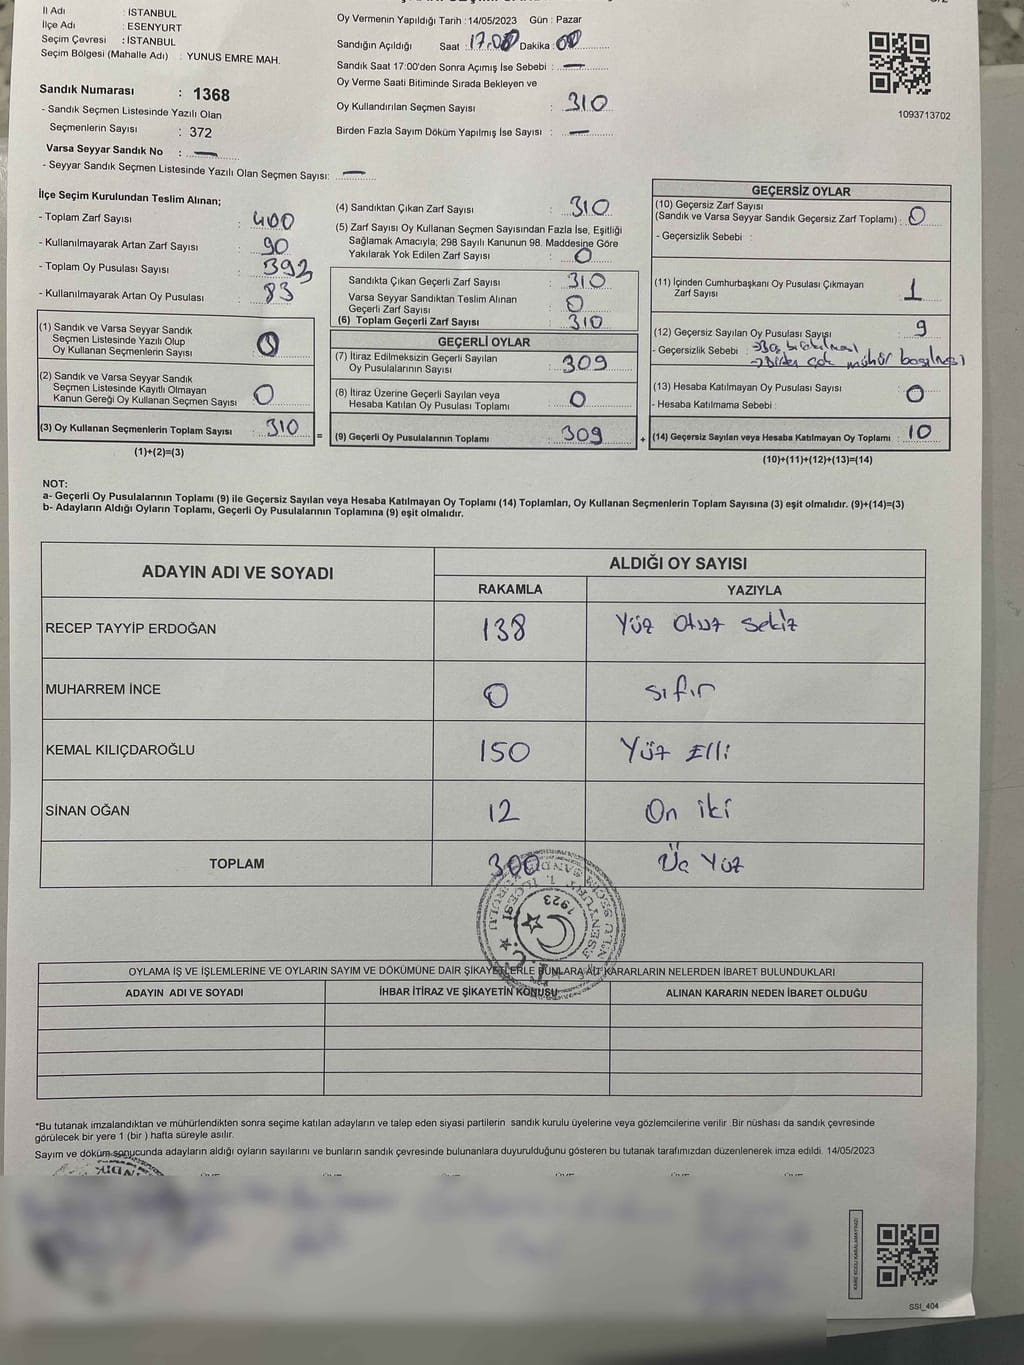 İl Adı : İSTANBUL
İlçe Adı : ESENYURT
Seçim Çevresi : İSTANBUL
Seçim Bölgesi (Mahalle Adı) : YUNUS EMRE MAH.
Sandık Numarası : 1368
- Sandık Seçmen Listesinde Yazılı Olan
Seçmenlerin Sayısı : 372
Varsa Seyyar Sandık No : —
- Seyyar Sandık Seçmen Listesinde Yazılı Olan Seçmen Sayısı: —
Oy Vermenin Yapıldığı Tarih : 14/05/2023 Gün : Pazar
Sandığın Açıldığı Saat : 17.00 Dakika : 00
Sandık Saat 17:00'den Sonra Açımış İse Sebebi : —
Oy Verme Saati Bitiminde Sırada Bekleyen ve
Oy Kullandırılan Seçmen Sayısı : 310
Birden Fazla Sayım Döküm Yapılmış İse Sayısı : —
1093713702
İlçe Seçim Kurulundan Teslim Alınan;
- Toplam Zarf Sayısı : 400
- Kullanılmayarak Artan Zarf Sayısı : 90
- Toplam Oy Pusulası Sayısı : 393
- Kullanılmayarak Artan Oy Pusulası : 83
(1) Sandık ve Varsa Seyyar Sandık
Seçmen Listesinde Yazılı Olup
Oy Kullanan Seçmenlerin Sayısı :
(2) Sandık ve Varsa Seyyar Sandık
Seçmen Listesinde Kayıtlı Olmayan
Kanun Gereği Oy Kullanan Seçmen Sayısı : 0
(3) Oy Kullanan Seçmenlerin Toplam Sayısı : 310
(1)+(2)=(3)
=
(4) Sandıktan Çıkan Zarf Sayısı : 310
(5) Zarf Sayısı Oy Kullanan Seçmen Sayısından Fazla İse, Eşitliği
Sağlamak Amacıyla; 298 Sayılı Kanunun 98. Maddesine Göre
Yakılarak Yok Edilen Zarf Sayısı : 0
Sandıkta Çıkan Geçerli Zarf Sayısı : 310
Varsa Seyyar Sandıktan Teslim Alınan
Geçerli Zarf Sayısı : 0
(6) Toplam Geçerli Zarf Sayısı : 310
GEÇERLİ OYLAR
(7) İtiraz Edilmeksizin Geçerli Sayılan
Oy Pusulalarının Sayısı : 309
(8) İtiraz Üzerine Geçerli Sayılan veya
Hesaba Katılan Oy Pusulası Toplamı : 0
(9) Geçerli Oy Pusulalarının Toplamı : 309
+
GEÇERSİZ OYLAR
(10) Geçersiz Zarf Sayısı
(Sandık ve Varsa Seyyar Sandık Geçersiz Zarf Toplamı) : 0
- Geçersizlik Sebebi :
(11) İçinden Cumhurbaşkanı Oy Pusulası Çıkmayan
Zarf Sayısı : 1
(12) Geçersiz Sayılan Oy Pusulası Sayısı : 9
- Geçersizlik Sebebi : →Boş bırakılması
→Birden çok mühür basılması
(13) Hesaba Katılmayan Oy Pusulası Sayısı : 0
- Hesaba Katılmama Sebebi :
(14) Geçersiz Sayılan veya Hesaba Katılmayan Oy Toplamı : 10
(10)+(11)+(12)+(13)=(14)
NOT:
a- Geçerli Oy Pusulalarının Toplamı (9) ile Geçersiz Sayılan veya Hesaba Katılmayan Oy Toplamı (14) Toplamları, Oy Kullanan Seçmenlerin Toplam Sayısına (3) eşit olmalıdır. (9)+(14)=(3)
b- Adayların Aldığı Oyların Toplamı, Geçerli Oy Pusulalarının Toplamına (9) eşit olmalıdır.
ADAYIN ADI VE SOYADI
ALDIĞI OY SAYISI
RAKAMLA YAZIYLA
RECEP TAYYİP ERDOĞAN 138 Yüz Otuz Sekiz
MUHARREM İNCE 0 sıfır
KEMAL KILIÇDAROĞLU 150 Yüz Elli
SİNAN OĞAN 12 On iki
TOPLAM 300 Üç Yüz
T.C.
1923
OYLAMA İŞ VE İŞLEMLERİNE VE OYLARIN SAYIM VE DÖKÜMÜNE DAİR ŞİKAYETLERLE BUNLARA AİT KARARLARIN NELERDEN İBARET BULUNDUKLARI
ADAYIN ADI VE SOYADI İHBAR İTİRAZ VE ŞİKAYETİN KONUSU ALINAN KARARIN NEDEN İBARET OLDUĞU
*Bu tutanak imzalandıktan ve mühürlendikten sonra seçime katılan adayların ve talep eden siyasi partilerin sandık kurulu üyelerine veya gözlemcilerine verilir .Bir nüshası da sandık çevresinde
görülecek bir yere 1 (bir ) hafta süreyle asılır.
Sayım ve döküm sonucunda adayların aldığı oyların sayılarını ve bunların sandık çevresinde bulunanlara duyurulduğunu gösteren bu tutanak tarafımızdan düzenlenerek imza edildi. 14/05/2023
KARE KODU KARALAMAYINIZ!
SSİ_404